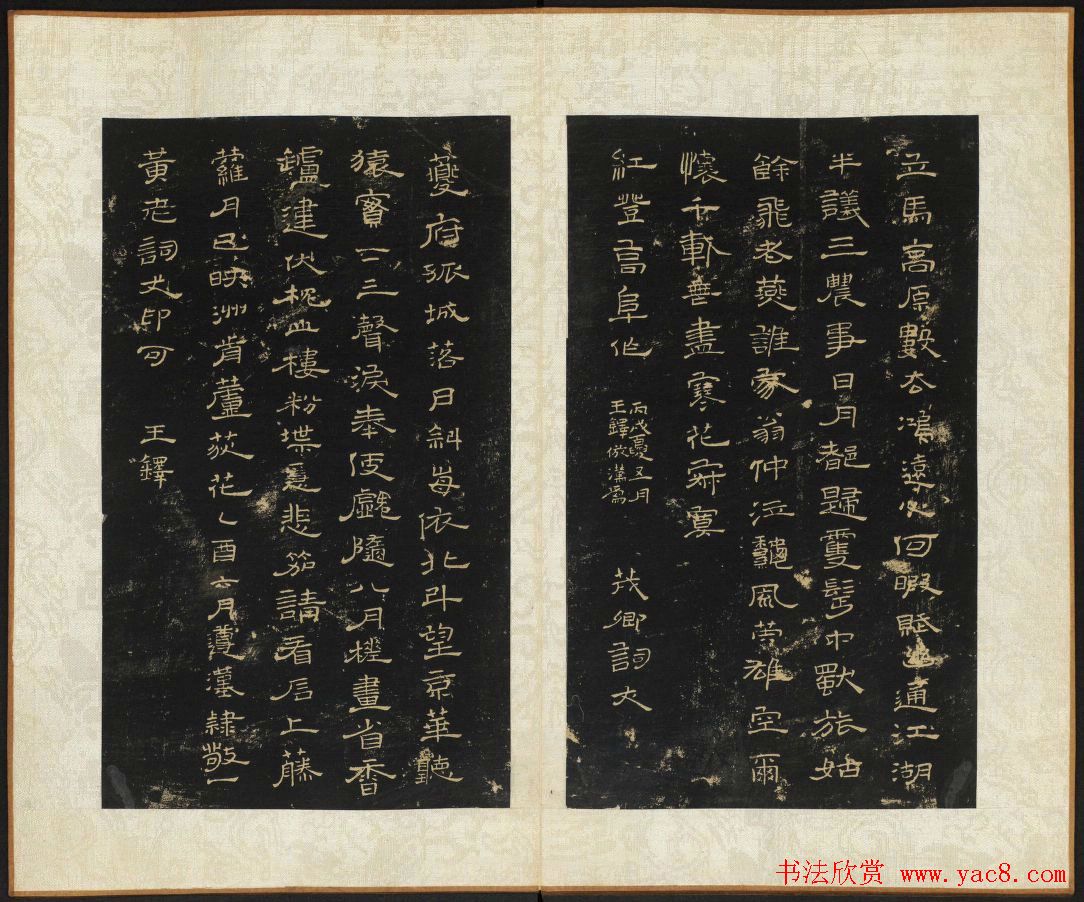 立馬高原數去鴻遠火何暇賦通江湖
半議三農事日月都歸雙髩中獸旅姑
餘飛老燕誰家翁仲泣龝風英雄空爾
懷千斬盡寒花寂寞
紅登高阜作
丙戌夏五月
王鐸倣漢為
茂卿詞丈
夔府孤城落日斜每依北斗望京華聽
猿實下三聲淚奉使虛隨八月槎畫省香
鑪違伏枕山樓粉堞隱悲笳請看石上藤
蘿月已映洲前蘆荻花乙酉六月遵漢隸敬一
黃老詞丈印可 王鐸
书法欣赏 www.yac8.com